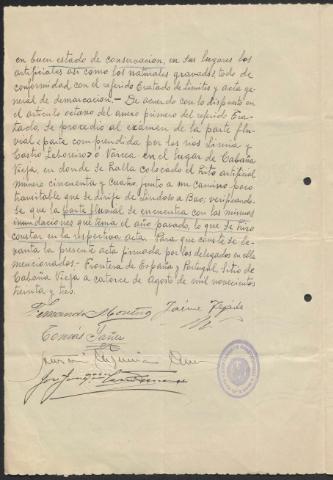 en buen estado de conservacion, en sus lugares los
artificiales asi como los naturales gravados, todo de
conformidad con el referido Tratado de limites y acta ge-
neral de demarcacion.- De acuerdo con lo dispuesto en
el articulo octavo del anexo primero del referido Tra-
tado, se procedió al examen de la parte flu-
vial, parte comprendida por los rios Limia y
Castro Leboreiro ó Varcea en el lugar de Cabaña
Vieja, en donde se halla colocado el hito artificial
número cincuenta y cuatro, junto a un camino poco
transitable que se dirije de Lindoso a Bao, verificando-
se que la parte fluvial se encuentra con las mismas
inundaciones que tenia el año pasado, lo que se hizo
constar en la respectiva acta. Para que conste se le-
vanta la presente acta firmada por los delegados en ella
mencionados.- Frontera de España y Portugal, Sitio de
Cabaña Vieja a catorce de Agosto de mil novecientos
treinta y tres.
Fernando Monteiro
Jaime
Tomás Yañez